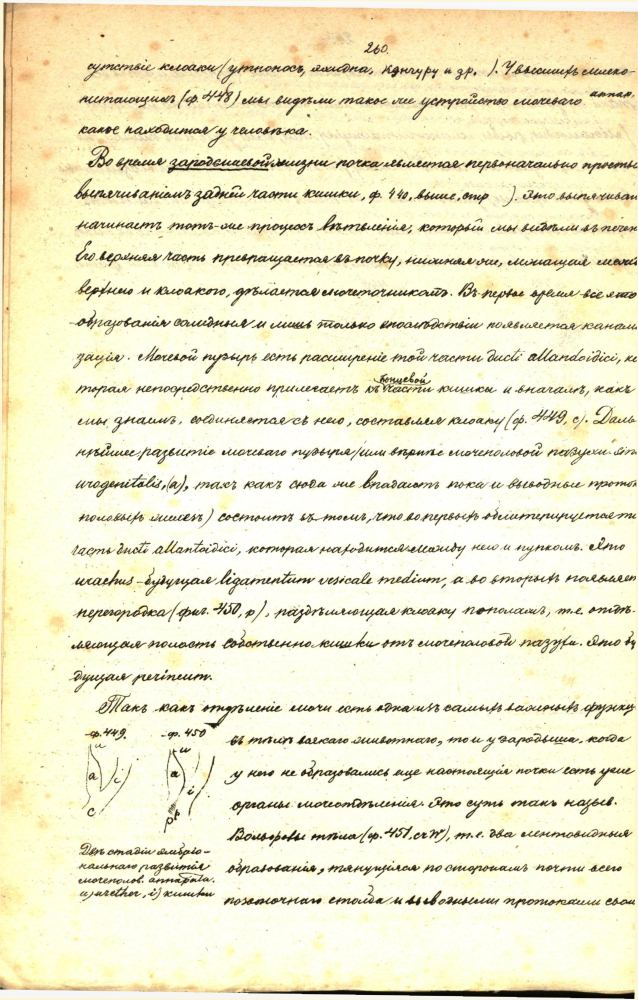 260.
сутствіе клоаки (утконосъ, эхидна, кенгуру и др. ). У высшихъ млеко-
питающихъ (ф. 448) мы видѣли такое же устройство мочеваго аппар.
какое находится у человѣка.
Во время зародышевой жизни почка является первоначально просты
выпячиваніемъ задней части кишки, ф. 440, выше, стр ). Это выпячиван
начинаетъ тотъ-же процессъ вѣтвленія, который мы видѣли въ печен
Его верхняя часть превращается въ почку, нижняя же, лежащая межд
верхнею и клоакою, дѣлается мочеточникомъ. Въ первое время все это
образованія солидныя и лишь только впослѣдствіи появляется канали
зація. Мочевой пузырь есть расширеніе той части ducti allantoidici, ко
торая непосредственно прилегаетъ къ концевой части кишки и вначалѣ, какъ
мы знаемъ, соединяется съ нею, составляя клоаку (ф. 449, с). Даль
нѣйшее развитіе мочеваго пузыря (или вѣрнѣе мочеполовой пазухи
urogenitalis, (а), такъ какъ сюда же впадаютъ пока и выводные проток
половыхъ железъ) состоитъ въ томъ, что во первыхъ облитерируется та
часть ducti allantoidici, которая находится между нею и пупкомъ. Это
urachus - будущая ligamentum vesicale medium, а во вторыхъ появляет
перегородка (фиг. 450, р), раздѣляющая клоаку пополамъ, т.е. отдѣ-
ляющая полость собственно кишки отъ мочеполовой пазухи. Это бу
дущая perineum.
Такъ какъ отдѣленіе мочи есть одна изъ самыхъ важныхъ функц
въ тѣлѣ всякаго животнаго, то и у зародыша, когда
у него не образовались еще настоящія почки есть уже
органы мочеотдѣленія. Это суть такъ назыв.
Вольфовы тѣла (ф. 451, cr W), т.е. два лентовидныя
образованія, тянущіяся по сторонамъ почти всего
позвоночнаго столба и выводными протоками свои
ф. 449. ф. 450
u u
a i a i
c p
Двѣ стадіи эмбріо-
нальнаго развитія
мочеполов. аппарата.
u) urether, i) кишки